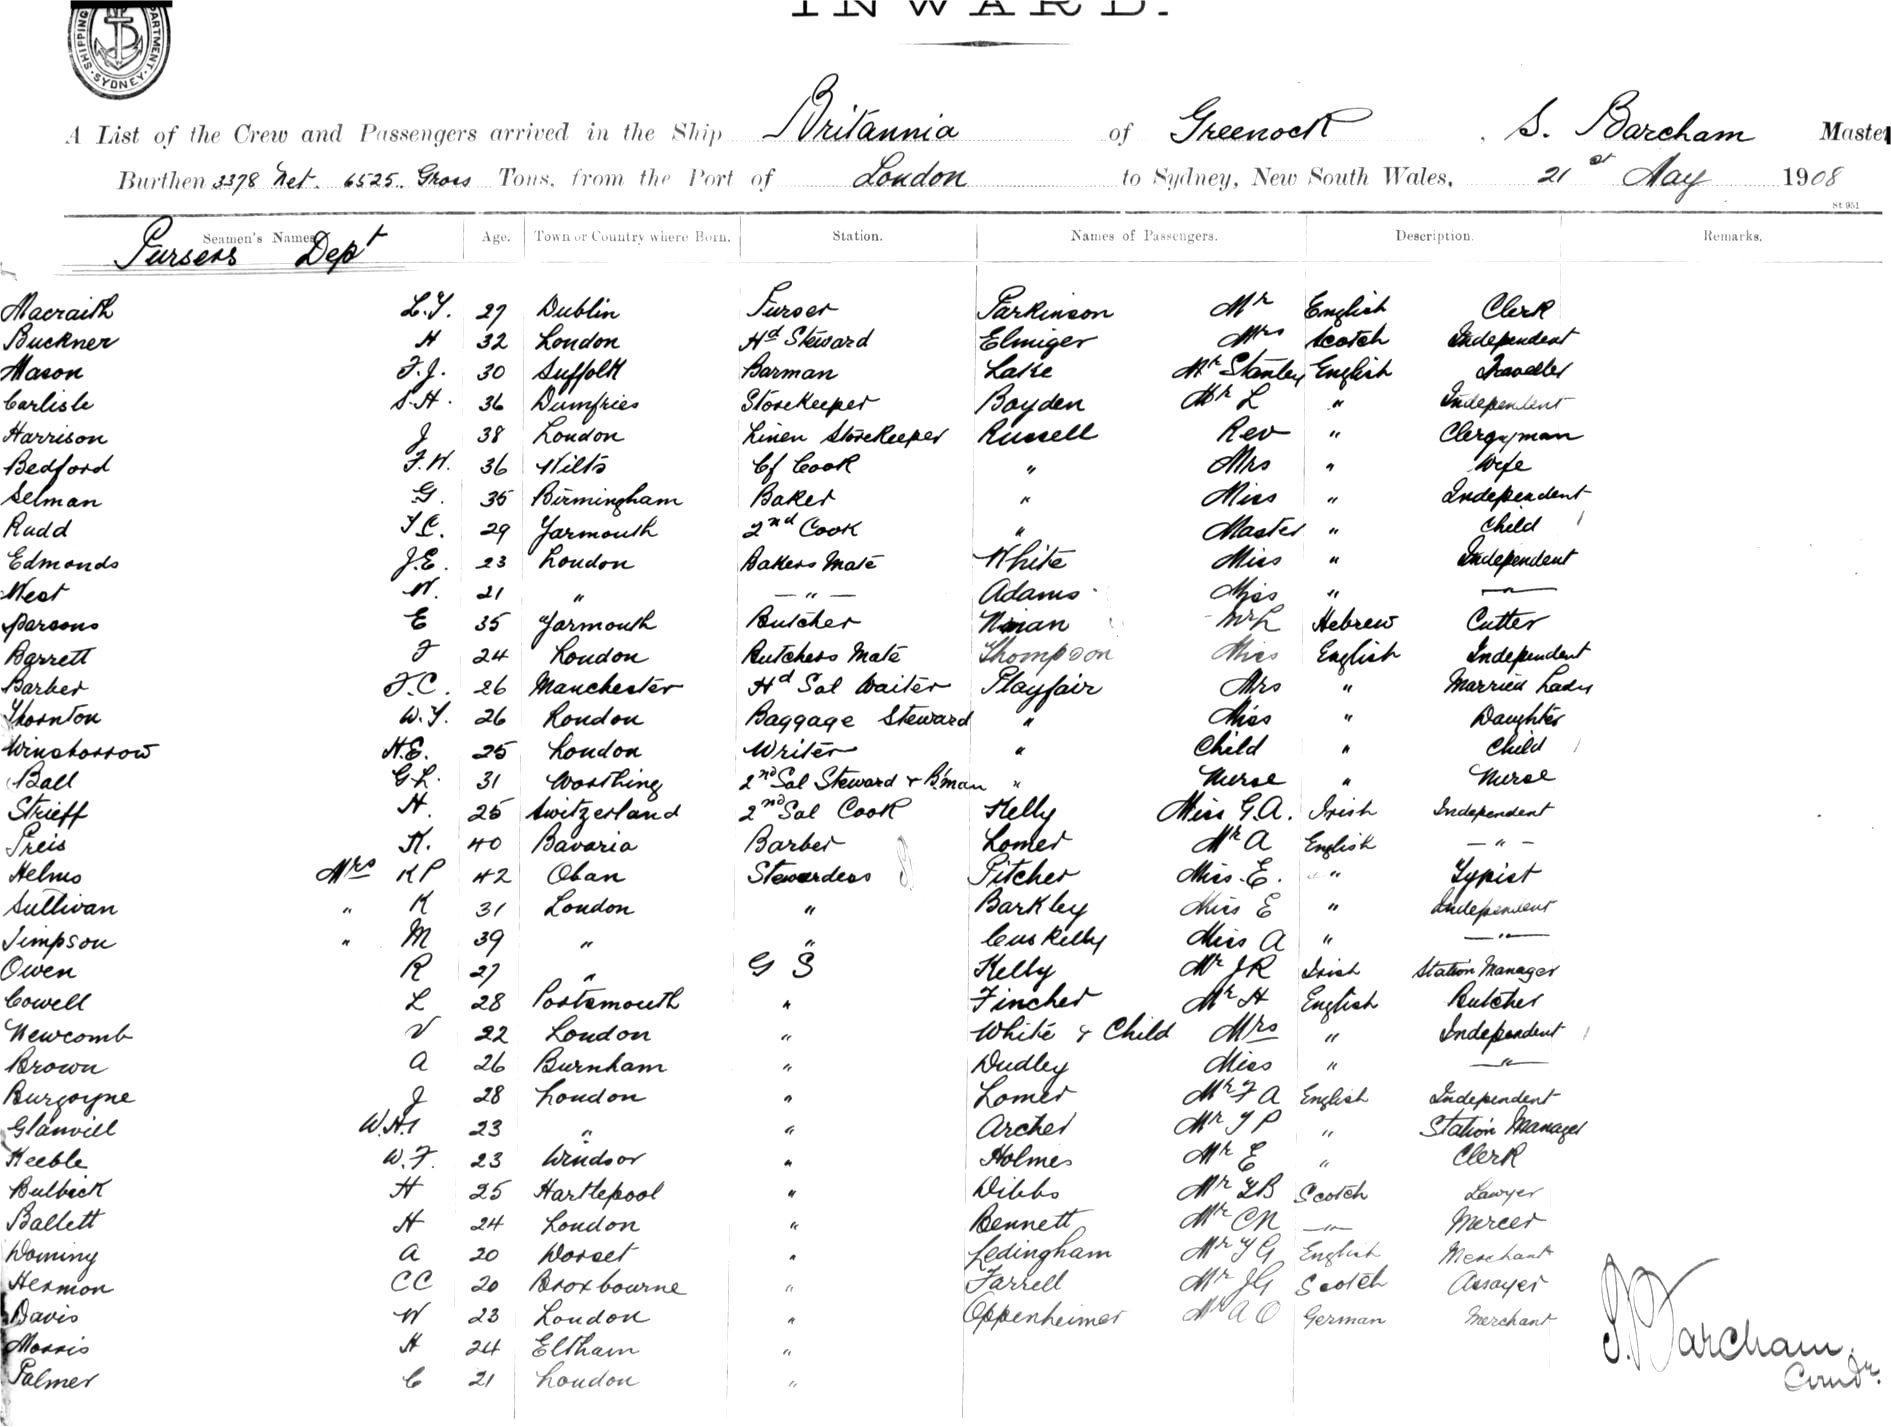 INWARD.
SHIPPING DEPARTMENT SYDNEY
A List of the Crew and Passengers arrived in the Ship Britannia of Greenock, S. Barcham Master
Burthen 3378 Net. 6525 Gross Tons, from the Port of London to Sydney, New South Wales, 21st May 1908
St 951
Seamen's Names. Age. Town or Country where Born. Station. Names of Passengers. Description. Remarks.
Pursers Dept
Macraith L.Y. 27 Dublin Purser Parkinson Mr English Clerk
Buckner H 32 London Hd Steward Elmiger Mrs Scotch Independent
Mason F.J. 30 Suffolk Barman Lake Mr Stanley English Traveller
Carlisle S.H. 36 Dumfries Storekeeper Boyden Mr L " Independent
Harrison J 38 London Linen Storekeeper Russell Rev " Clergyman
Bedford F.W. 36 Wilts Cf Cook " Mrs " Wife
Selman G. 35 Birmingham Baker " Miss " Independent
Rudd T.C. 29 Yarmouth 2nd Cook " Master " Child
Edmonds J.E. 23 London Bakers Mate White Miss " Independent
West W. 21 " " Adams Miss " "
Parsons E 35 Yarmouth Butcher Mr L Hebrew Cutter
Barrett F 24 London Butchers Mate Thompson Miss English Independent
Barber F.C. 26 Manchester Hd Sal Waiter Playfair Mrs " Married Lady
Thornton W.Y. 26 London Baggage Steward " Miss " Daughter
Winsborrow H.E. 25 London Writer " Child " Child
Ball G.L. 31 Worthing 2nd Sal Steward & B'man " Nurse " Nurse
Strieff H. 25 Switzerland 2nd Sal Cook Kelly Miss G.A. Irish Independent
Preis K. 40 Bavaria Barber Lomer Mr A English "
Helms Mrs K P 42 Oban Stewardess Pitcher Miss E. " Typist
Sullivan " K 31 London " Barkley Miss E " Independent
Simpson " M 39 " " Cuskelly Miss A " "
Owen R 27 " G S Kelly Mr J R Irish Station Manager
Cowell L 28 Portsmouth " Fincher Mr H English Butcher
Newcomb V 22 London " White & Child Mrs " Independent
Brown A 26 Burnham " Dudley Miss " "
Burgoyne J 28 London " Lomer Mr F A English Independent
Glanvill W.H. 23 " " Archer Mr T P " Station Manager
Keeble W.F. 23 Windsor " Holmes Mr E " Clerk
Bulbick H 25 Hartlepool " Dibbs Mr T B Scotch Lawyer
Ballett H 24 London " Bennett Mr C N " Mercer
Dominy A 20 Dorset " Ledingham Mr T G English Merchant
Hermon C C 20 Broxbourne " Farrell Mr J G Scotch Assayer
Davis W 23 London " Oppenheimer Mr A O German Merchant
Morris H 24 Eltham "
Palmer C 21 London "
S. Barcham.
Comdr.